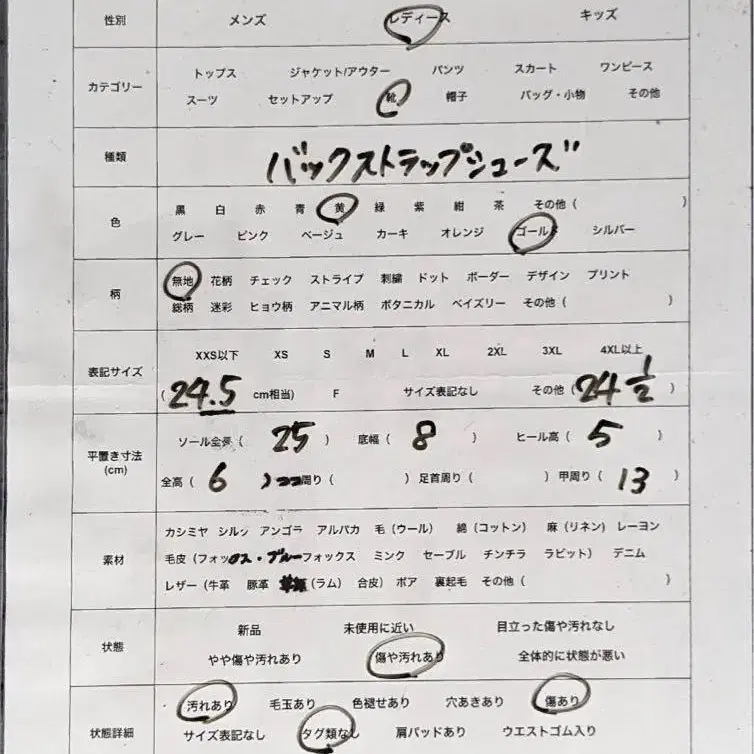 性別 メンズ レディース キッズ
カテゴリー
トップス ジャケット/アウター パンツ スカート ワンピース
スーツ セットアップ 靴 帽子 バッグ・小物 その他
種類 バックストラップシューズ
色
黒 白 赤 青 黄 緑 紫 紺 茶 その他 ( )
グレー ピンク ベージュ カーキ オレンジ ゴールド シルバー
柄
無地 花柄 チェック ストライプ 刺繍 ドット ボーダー デザイン プリント
総柄 迷彩 ヒョウ柄 アニマル柄 ボタニカル ペイズリー その他 ( )
表記サイズ
XXS以下 XS S M L XL 2XL 3XL 4XL以上
(24.5 cm相当) F サイズ表記なし その他 (24 1/2 )
平置き寸法
(cm)
ソール全長 ( 25 ) 底幅 ( 8 ) ヒール高 ( 5 )
全高 ( 6 ) 周り ( ) 足首周り ( ) 甲周り ( 13 )
素材
カシミヤ シルク アンゴラ アルパカ 毛 (ウール) 綿 (コットン) 麻 (リネン) レーヨン
毛皮 (フォックス・ブルーフォックス ミンク セーブル チンチラ ラビット) デニム
レザー (牛革 豚革 (ラム) 合皮) ボア 裏起毛 その他 ( )
状態
新品 未使用に近い 目立った傷や汚れなし
やや傷や汚れあり 傷や汚れあり 全体的に状態が悪い
状態詳細
汚れあり 毛玉あり 色褪せあり 穴あきあり 傷あり
サイズ表記なし タグ類なし 肩パッドあり ウエストゴム入り